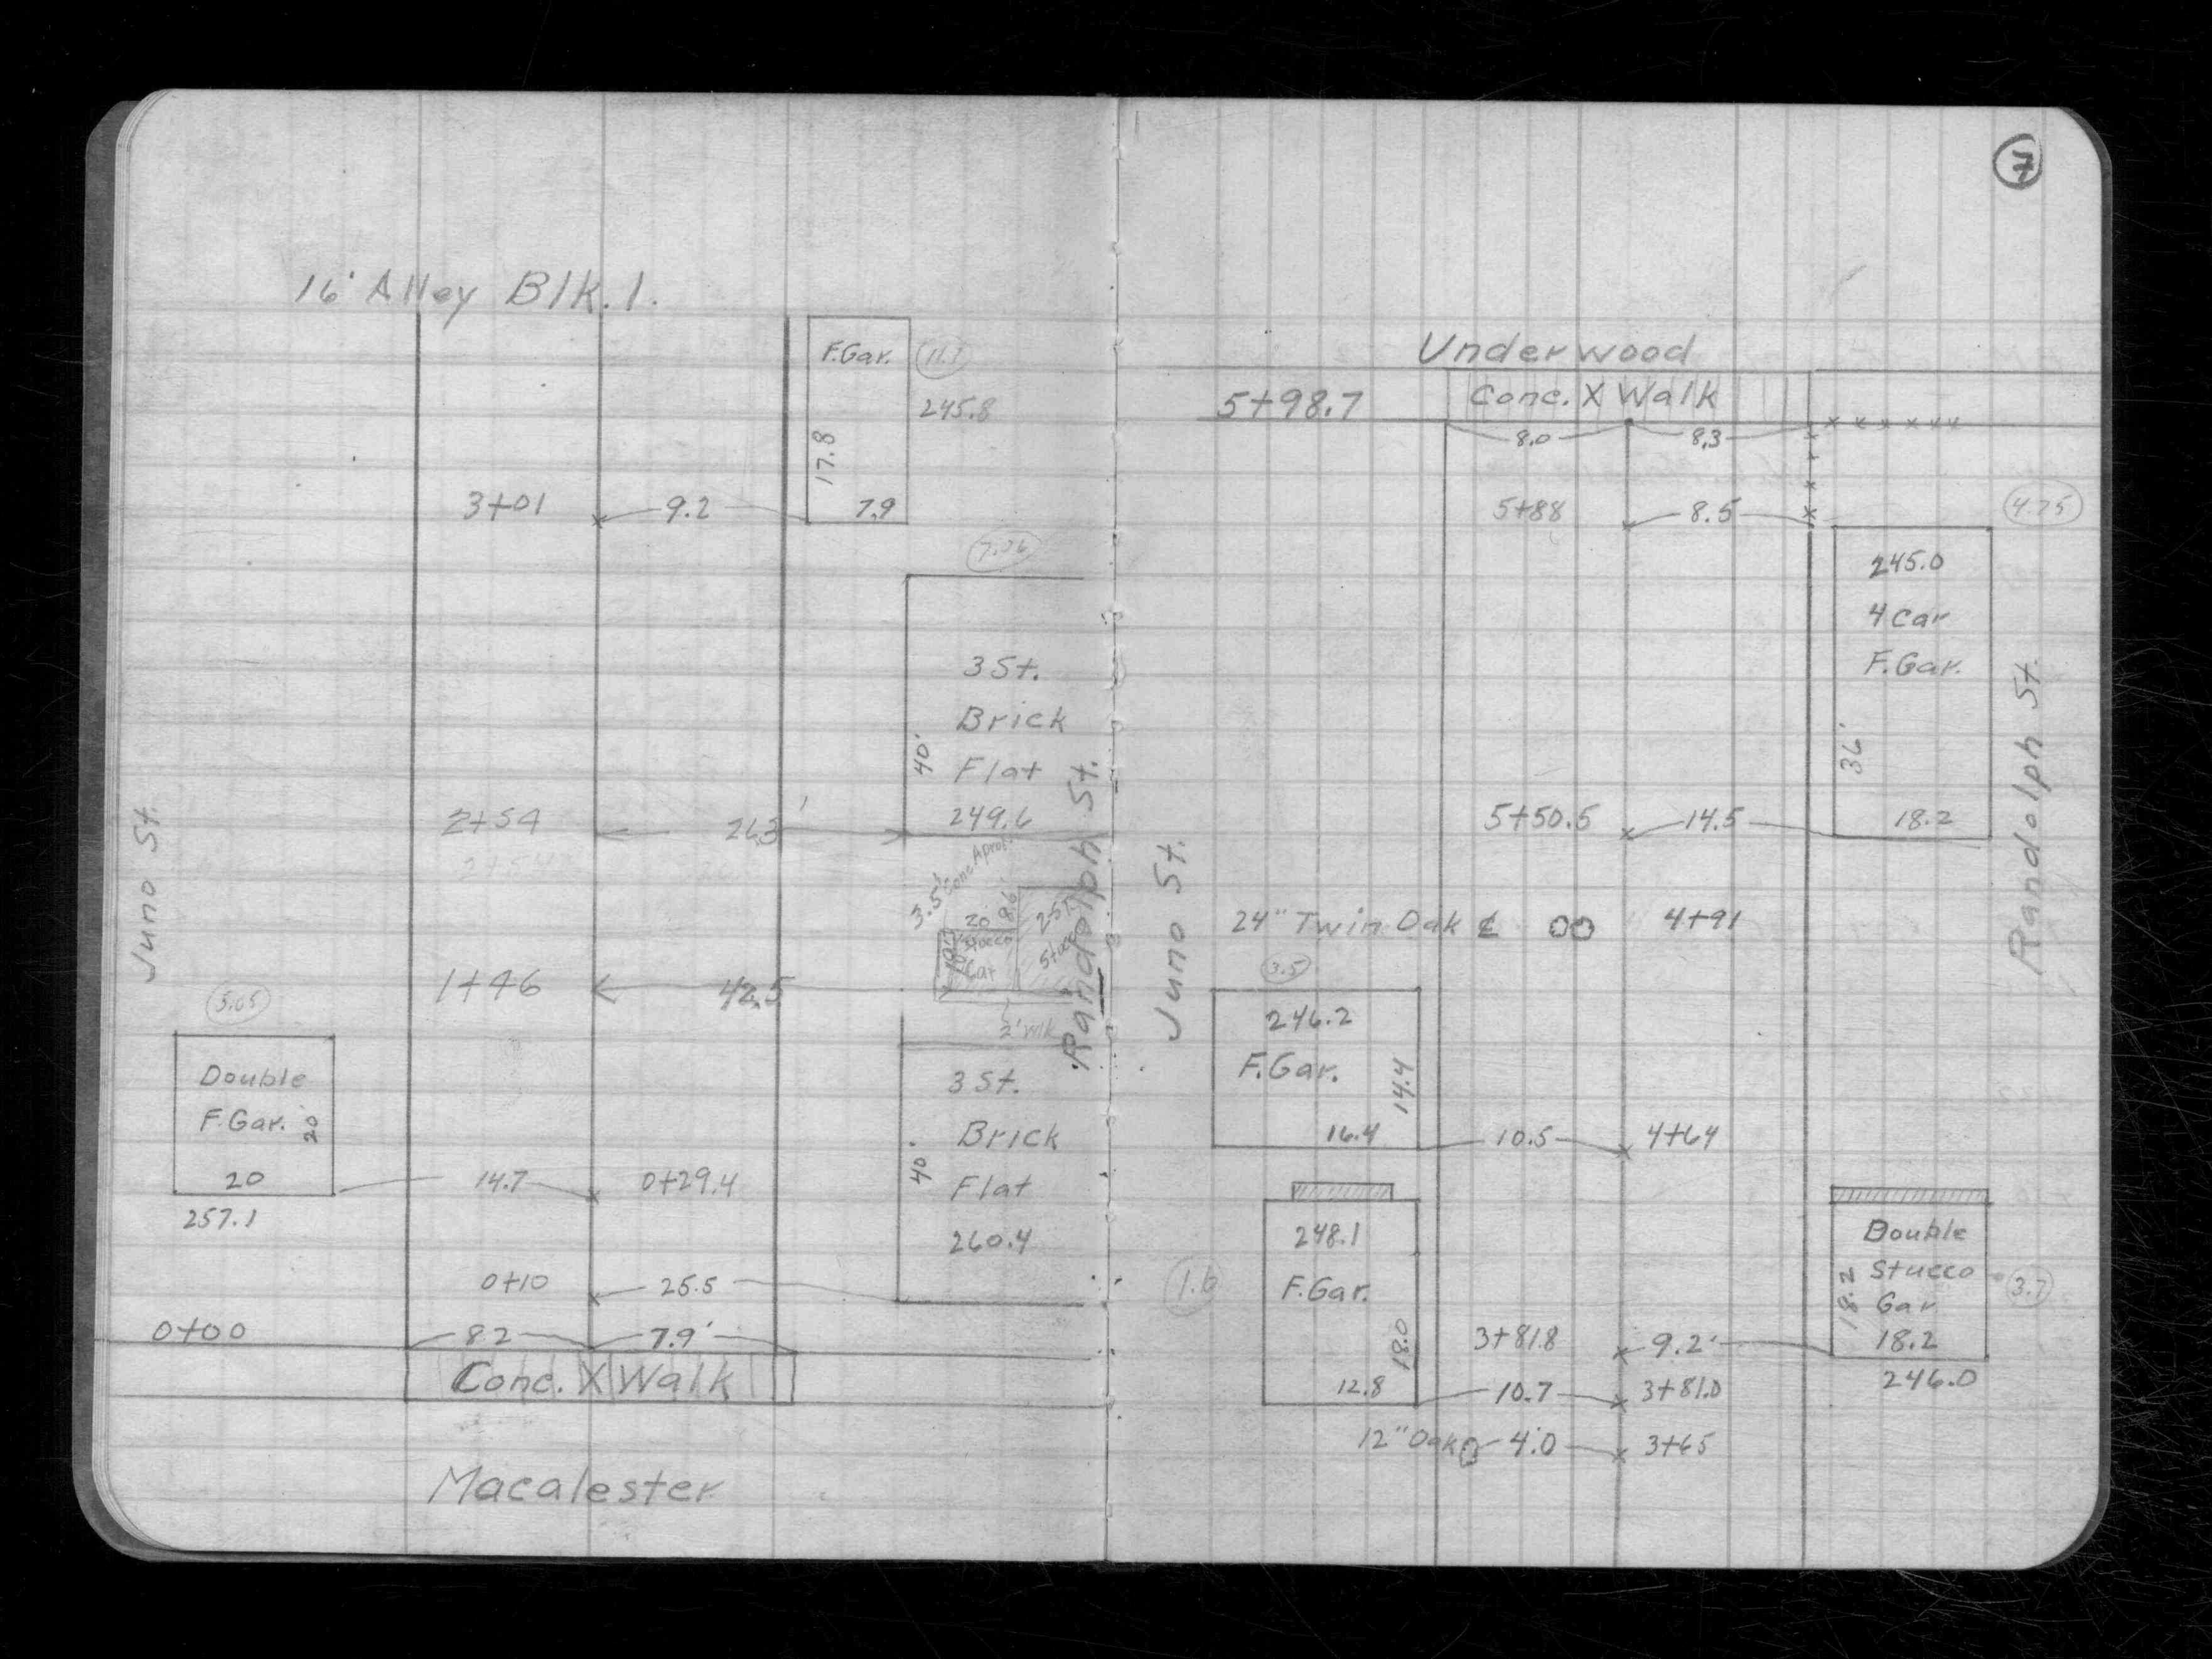 7
16' Alley Blk. 1.
F.Gar.
245.8
17.8
3+01 9.2 7.9
3 St.
Brick
40'
Flat
249.6
2+54 26.3'
3.5' Conc. Apron
20 8.6
Stucco
Gar
Stucco
1+46 42.5
2' Wlk
Randolph St.
Juno St.
5.05
Double
F.Gar. 20
20
257.1
14.7 0+29.4
3 St.
Brick
40'
Flat
260.4
0+10 25.5
0+00 8.2 7.9'
Conc. X Walk
Macalester
Underwood
5+98.7 Conc. X Walk
8.0 8.3
5+88 8.5
4.25
245.0
4 Car
F.Gar.
36'
18.2
5+50.5 14.5
Randolph St.
Juno St.
24" Twin Oak ℄ 4+91
3.5
246.2
F.Gar.
14.4
16.4 10.5 4+64
248.1
F.Gar.
1.6
18.0
12.8 10.7 3+81.0
Double
Stucco
Gar.
18.2
18.2
3.7
246.0
3+81.8 9.2'
12" Oak 4.0 3+65